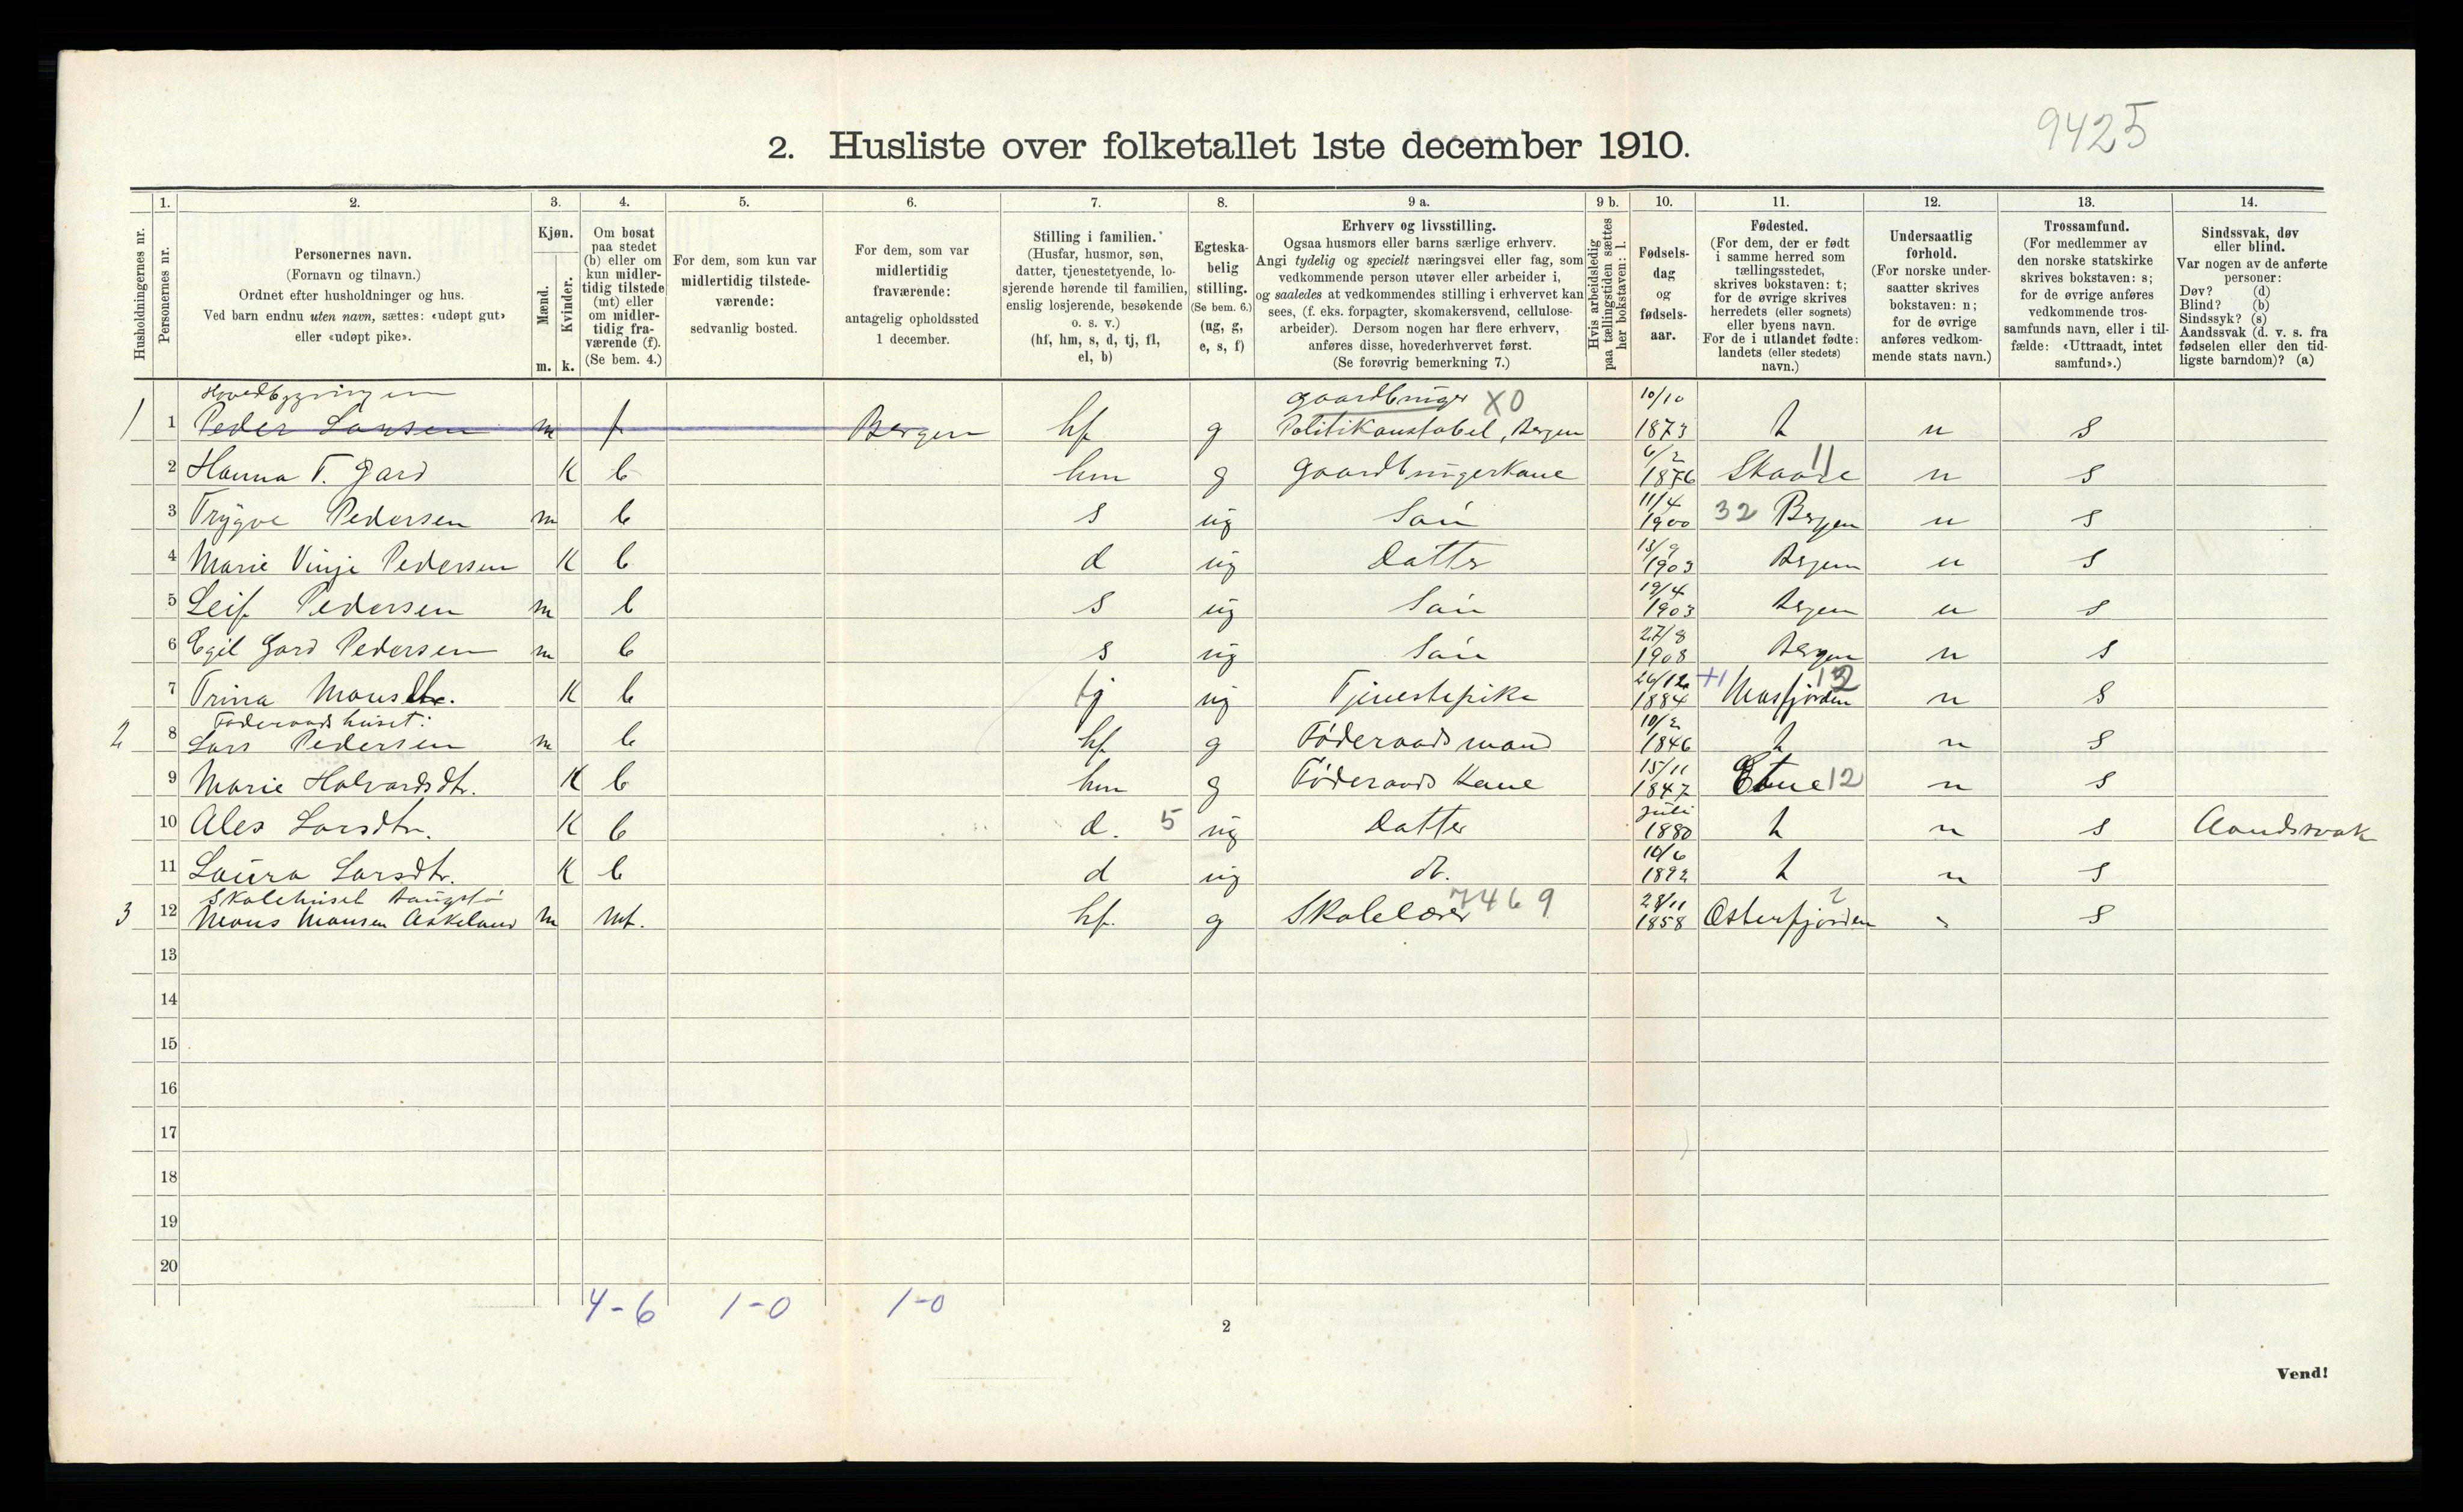 9425
2. Husliste over folketallet 1ste december 1910.
1. 2. 3. 4. 5. 6. 7. 8. 9 a. 9 b. 10. 11. 12. 13. 14.
Husholdningernes nr.
Personernes nr.
Personernes navn.
(Fornavn og tilnavn.)
Ordnet efter husholdninger og hus.
Ved barn endnu uten navn, sættes: «udøpt gut»
eller «udøpt pike».
Kjøn.
Mænd.
Kvinder.
m. k.
Om bosat
paa stedet
(b) eller om
kun midler-
tidig tilstede
(mt) eller
om midler-
tidig fra-
værende (f).
(Se bem. 4.)
For dem, som kun var
midlertidig tilstede-
værende:
sedvanlig bosted.
For dem, som var
midlertidig
fraværende:
antagelig opholdssted
1 december.
Stilling i familien.
(Husfar, husmor, søn,
datter, tjenestetyende, lo-
sjerende hørende til familien,
enslig losjerende, besøkende
o. s. v.)
(hf, hm, s, d, tj, fl,
el, b)
Egteska-
belig
stilling.
(Se bem. 6.)
(ug, g,
e, s, f)
Erhverv og livsstilling.
Ogsaa husmors eller barns særlige erhverv.
Angi tydelig og specielt næringsvei eller fag, som
vedkommende person utøver eller arbeider i,
og saaledes at vedkommendes stilling i erhvervet kan
sees, (f. eks. forpagter, skomakersvend, cellulose-
arbeider). Dersom nogen har flere erhverv,
anføres disse, hovederhvervet først.
(Se forøvrig bemerkning 7.)
Hvis arbeidsledig
paa tællingstiden sættes
her bokstaven: l.
Fødsels-
dag
og
fødsels-
aar.
Fødested.
(For dem, der er født
i samme herred som
tællingsstedet,
skrives bokstaven: t;
for de øvrige skrives
herredets (eller sognets)
eller byens navn.
For de i utlandet fødte:
landets (eller stedets)
navn.)
Undersaatlig
forhold.
(For norske under-
saatter skrives
bokstaven: n;
for de øvrige
anføres vedkom-
mende stats navn.)
Trossamfund.
(For medlemmer av
den norske statskirke
skrives bokstaven: s;
for de øvrige anføres
vedkommende tros-
samfunds navn, eller i til-
fælde: «Uttraadt, intet
samfund».)
Sindssvak, døv
eller blind.
Var nogen av de anførte
personer:
Døv? (d)
Blind? (b)
Sindssyk? (s)
Aandssvak (d. v. s. fra
fødselen eller den tid-
ligste barndom)? (a)
Hovedbygningen gaardbruger X0 10/10
1 1 Peder Larsen m f Bergen hf g Politikonstabel, Bergen 1873 t n s
2 Hanna T. Gard K b hm g gaardbrugerkone 6/2 1876 Skaare 11 n s
3 Trygve Pedersen m b s ug Søn 11/4 1900 32 Bergen n s
4 Marie Vinje Pedersen K b d ug Datter 13/9 1903 Bergen n s
5 Leif Pedersen m b s ug Søn 19/4 1903 Bergen n s
6 Egil Gard Pedersen m b s ug Søn 27/8 1908 Bergen n s
7 Trina Monsdtr. K b tj ug Tjenestepike 26/12 1884 +1 Masfjorden n s
Føderaadshuset:
2 8 Lars Pedersen m b hf g Føderaadsmand 10/2 1846 t n s
9 Marie Halvardsdtr. K b hm g Føderaads Kone 15/11 1847 Etne 12 n s
10 Ales Larsdtr. K b d. 5 ug Datter Juli 1880 t n s Aandssvak
11 Laura Larsdtr. K b d ug do. 10/6 1892 t n s
Skolehuset
3 12 Mons Monsen Askeland m mt. hf. g Skolelærer 7469 28/11 1858 Osterfjorden 2 " s
13
14
15
16
17
18
19
20
4-6 1-0 1-0
2
Vend!